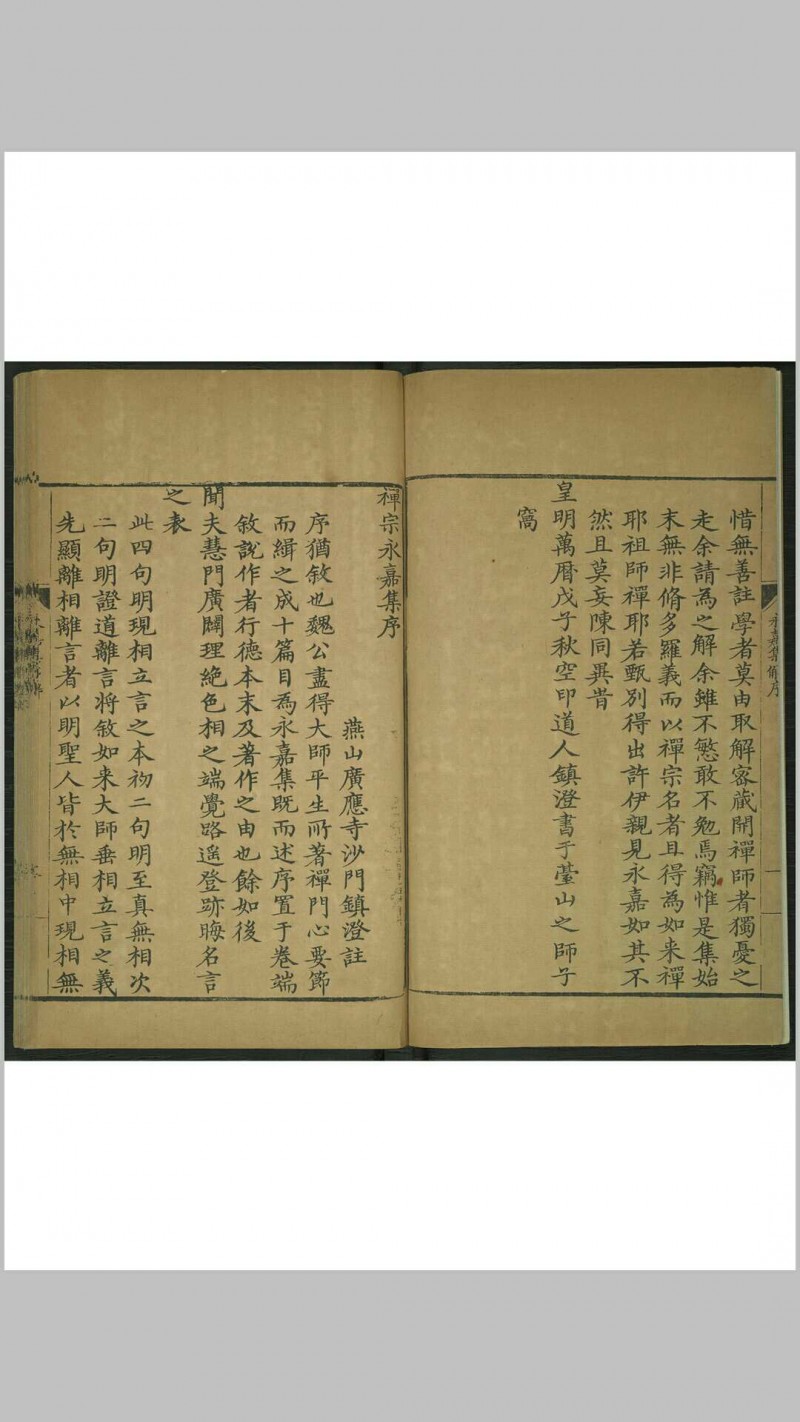 惜無善註學者莫由取解密藏開禪師者獨憂之
走余請為之解余雖不慜敢不勉焉竊惟是集始
末無非脩多羅義而以禪宗名者且得為如来禪
耶祖師禪耶若甄別得出許伊親見永嘉如其不
然且莫妄陳同異昔
皇明萬曆戊子秋空印道人鎮澄書于臺山之師子
窩
禪宗永嘉集序
燕山廣應寺沙門鎮澄註
序猶敘也魏公盡得大師平生所著禪門心要節
而緝之成十篇目為永嘉集既而述序置于卷端
敘說作者行德本末及著作之由也餘如後
聞夫慧門廣闢理絕色相之端覺路遥登跡晦名言
之表
此四句明現相立言之本初二句明至真無相次
二句明證道離言将敘如来大師垂相立言之義
先顯離相離言者以明聖人皆於無相中現相無